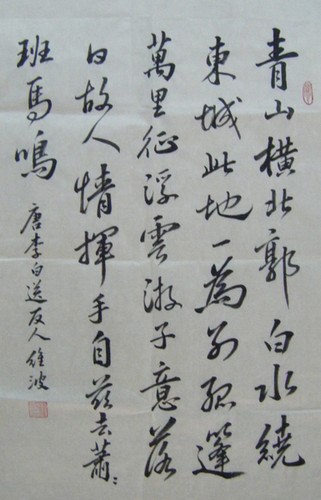 青山橫北郭白水繞
東城此地一為別孤篷
萬里征浮雲游子意落
日故人情揮手自茲去蕭〻
班馬鳴
唐李白送友人維波